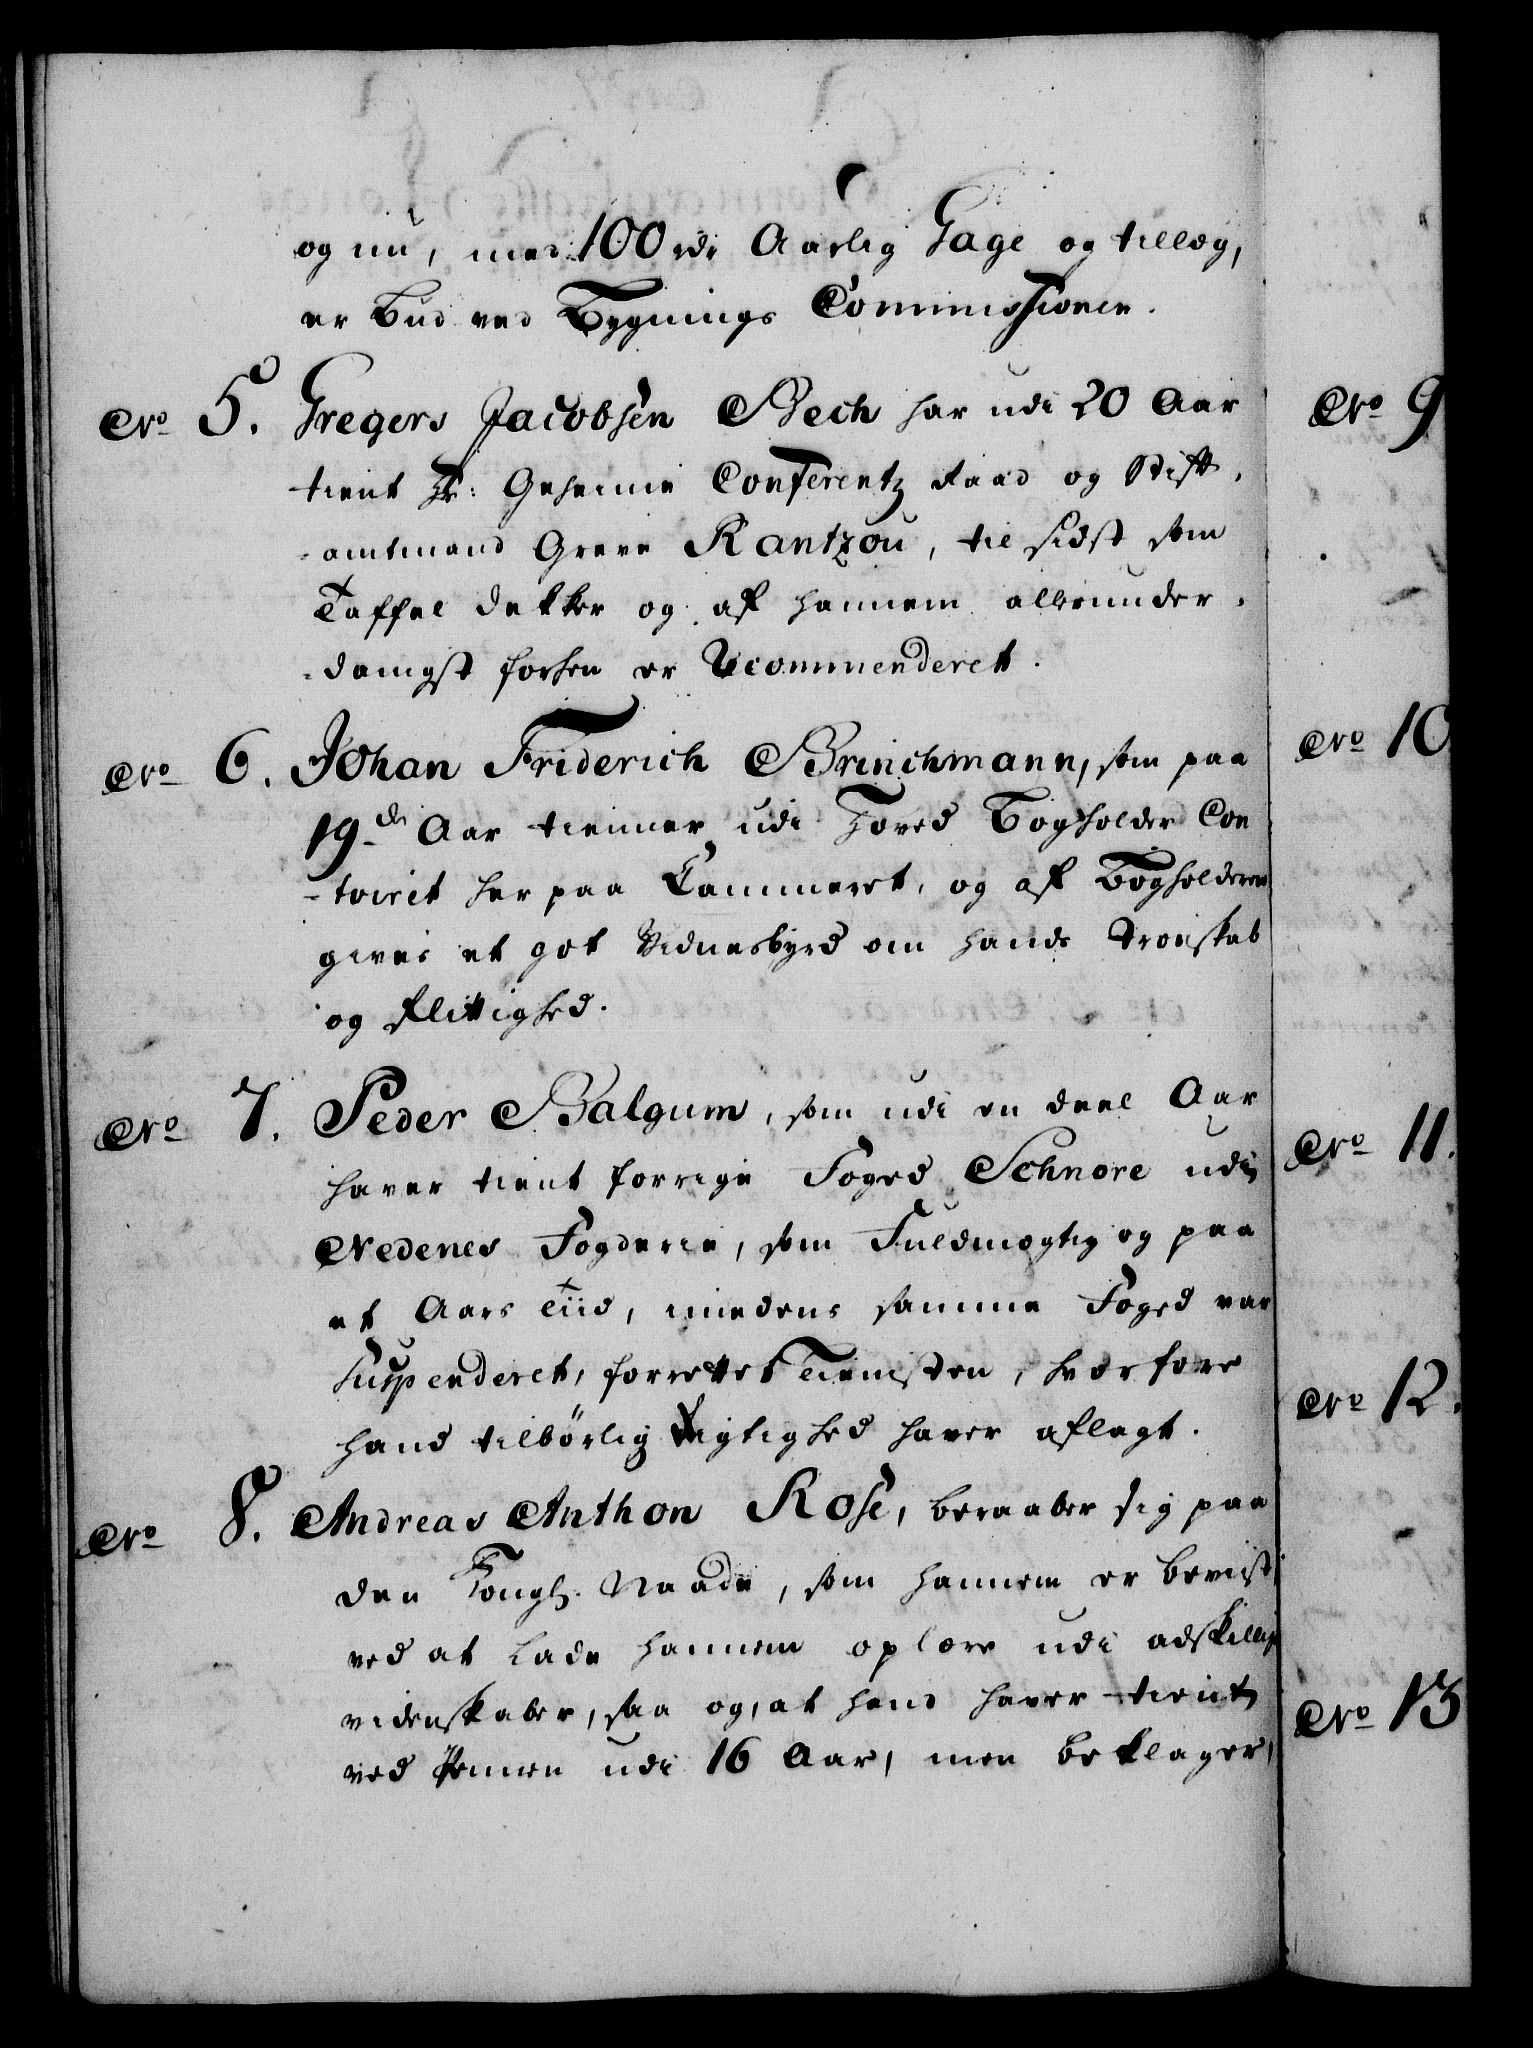 og nu, med 100 rdr Aarlig Gage og tillæg,
er Bud ved Bygnings Commissionen.
No 5. Gregers Jacobsen Bech har udi 20 Aar
tient Hr: Geheime Conferentz Raad og Stift-
-amtmand Greve Rantzou, til sidst som
Taffel dekker og af hannem allerunder-
-danigst forhen er Recommenderet.
No 6. Johan Friderich Brinchmann, som paa
19de Aar tienner udi Hoved Bogholder Con
-toiret her paa Cammeret, og af Bogholderen
gives et got Vidnesbyrd om hands Troeskab
og Flittighed.
No 7. Peder Balgum, som udi en deel Aar
haver tient forrige Foged Schnore udi
Nedenes Fogderie, som Fuldmægtig og paa
et Aars Tiid, imedens samme Foged var
Suspenderet, forrettet Tienisten, hvorfore
hand tilbörlig Rigtighed haver aflagt.
No 8. Andreas Anthon Rose, beraaber sig paa
den Kongl. Naade, som hannem er beviist
ved at lade hannem oplære udi adskillige
videnskaber, saa og, at hand haver tient
ved Pennen udi 16 Aar, men beklager,
No 9
No 10
No 11.
No 12.
No 13